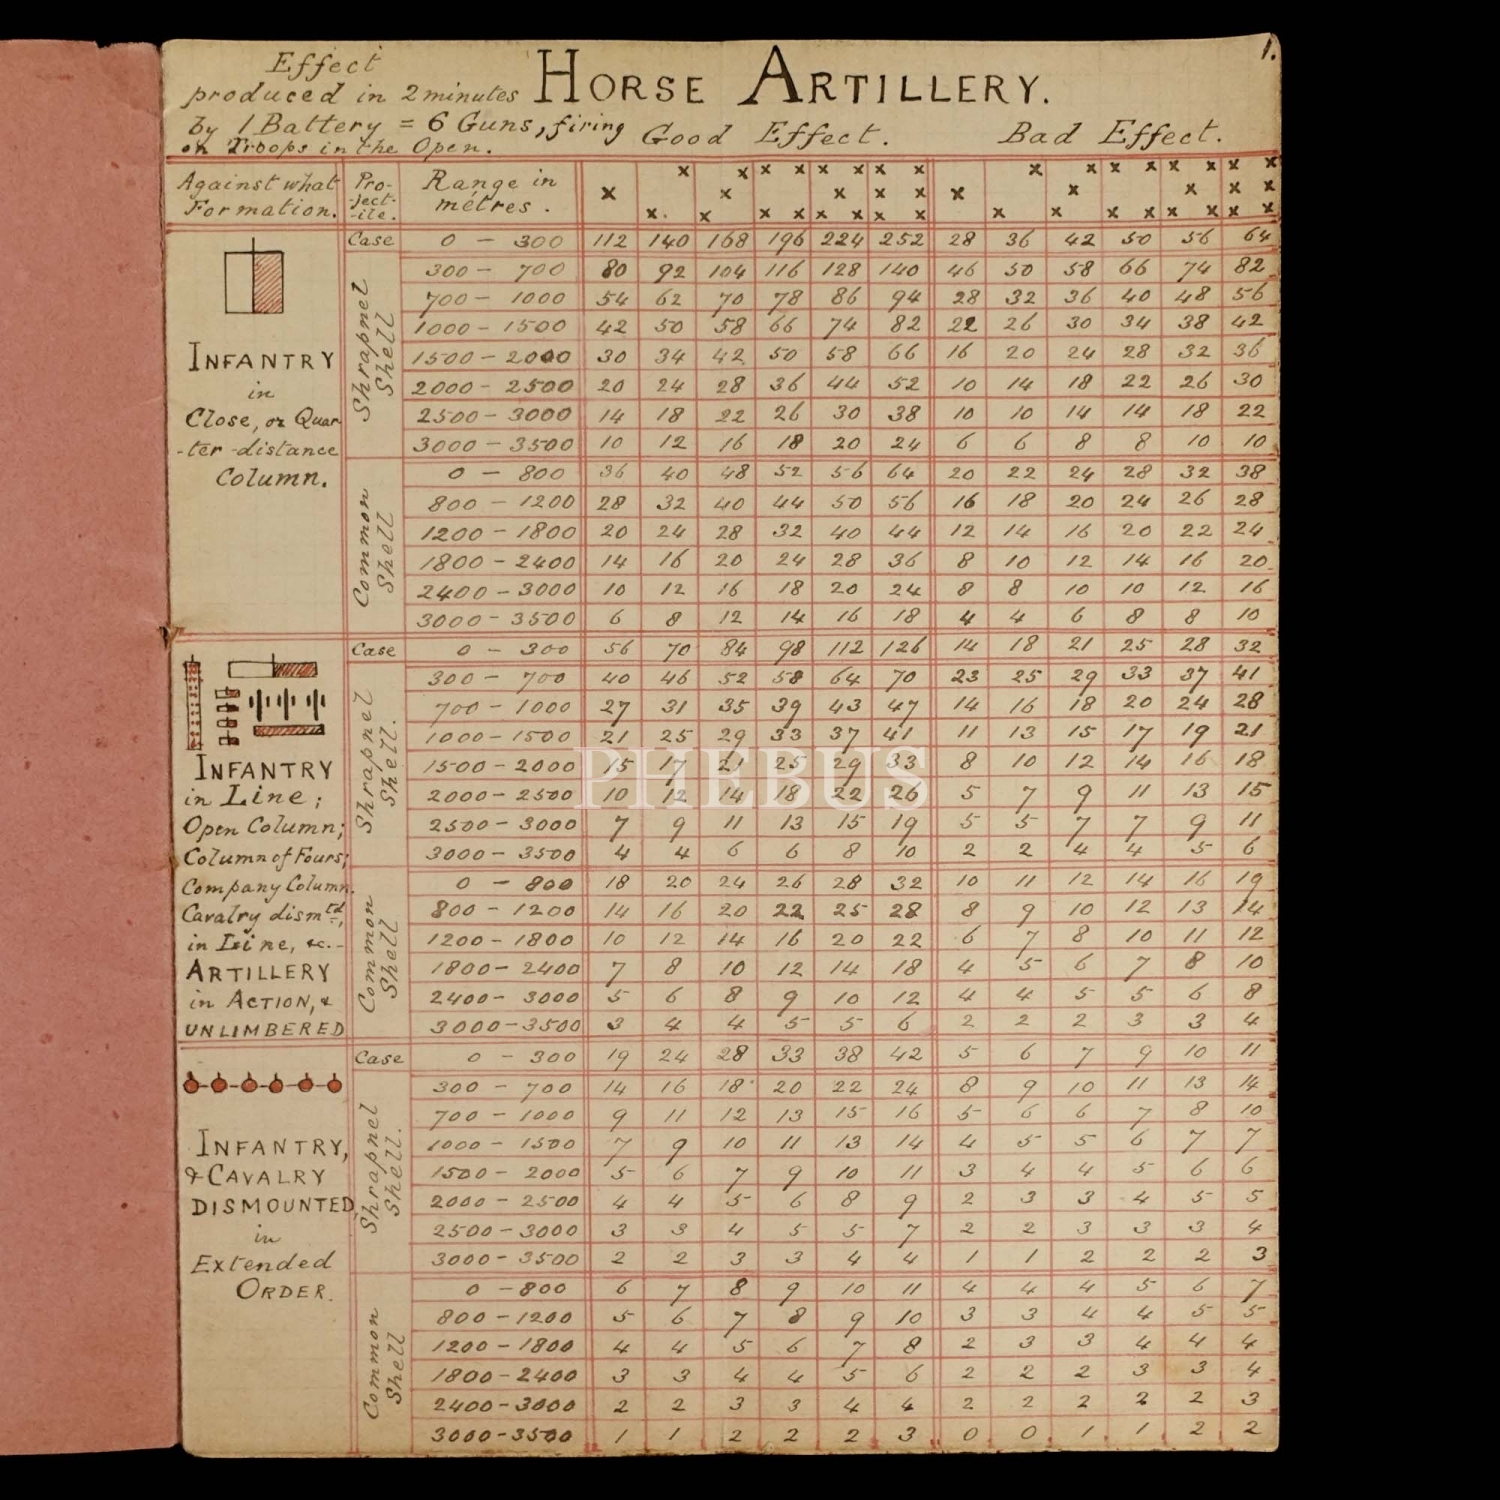 1.
Effect
produced in 2 minutes
by 1 Battery = 6 Guns, firing
on Troops in the Open.
HORSE ARTILLERY.
Good Effect. Bad Effect.
Against what Formation. Pro-ject-ile. Range in métres.
Case 0 - 300 112 140 168 196 224 252 28 36 42 50 56 64
Shrapnel Shell
300 - 700 80 92 104 116 128 140 46 50 58 66 74 82
700 - 1000 54 62 70 78 86 94 28 32 36 40 48 56
1000 - 1500 42 50 58 66 74 82 22 26 30 34 38 42
1500 - 2000 30 34 42 50 58 66 16 20 24 28 32 36
2000 - 2500 20 24 28 36 44 52 10 14 18 22 26 30
2500 - 3000 14 18 22 26 30 38 10 10 14 14 18 22
3000 - 3500 10 12 16 18 20 24 6 6 8 8 10 10
INFANTRY
in
Close, or Quar
-ter-distance
Column.
Common Shell
0 - 800 36 40 48 52 56 64 20 22 24 28 32 38
800 - 1200 28 32 40 44 50 56 16 18 20 24 26 28
1200 - 1800 20 24 28 32 40 44 12 14 16 20 22 24
1800 - 2400 14 16 20 24 28 36 8 10 12 14 16 20
2400 - 3000 10 12 16 18 20 24 8 8 10 10 12 16
3000 - 3500 6 8 12 14 16 18 4 4 6 8 8 10
Case 0 - 300 56 70 84 98 112 126 14 18 21 25 28 32
Shrapnel Shell.
300 - 700 40 46 52 58 64 70 23 25 29 33 37 41
700 - 1000 27 31 35 39 43 47 14 16 18 20 24 28
1000 - 1500 21 25 29 33 37 41 11 13 15 17 19 21
1500 - 2000 15 17 21 25 29 33 8 10 12 14 16 18
2000 - 2500 10 12 14 18 22 26 5 7 9 11 13 15
2500 - 3000 7 9 11 13 15 19 5 5 7 7 9 11
3000 - 3500 4 4 6 6 8 10 2 2 4 4 5 6
INFANTRY
in Line;
Open Column;
Column of Fours;
Company Column.
Cavalry dismtd,
in Line, &c.-
ARTILLERY
in ACTION, &
UNLIMBERED
Common Shell
0 - 800 18 20 24 26 28 32 10 11 12 14 16 19
800 - 1200 14 16 20 22 25 28 8 9 10 12 13 14
1200 - 1800 10 12 14 16 20 22 6 7 8 10 11 12
1800 - 2400 7 8 10 12 14 18 4 5 6 7 8 10
2400 - 3000 5 6 8 9 10 12 4 4 5 5 6 8
3000 - 3500 3 4 4 5 5 6 2 2 2 3 3 4
Case 0 - 300 19 24 28 33 38 42 5 6 7 9 10 11
Shrapnel Shell.
300 - 700 14 16 18 20 22 24 8 9 10 11 13 14
700 - 1000 9 11 12 13 15 16 5 6 6 7 8 10
1000 - 1500 7 9 10 11 13 14 4 5 5 6 7 7
1500 - 2000 5 6 7 9 10 11 3 4 4 5 6 6
2000 - 2500 4 4 5 6 8 9 2 3 3 4 5 5
2500 - 3000 3 3 4 5 5 7 2 2 3 3 3 4
3000 - 3500 2 2 3 3 4 4 1 1 2 2 2 3
INFANTRY,
& CAVALRY
DISMOUNTED
in
Extended
ORDER.
Common Shell
0 - 800 6 7 8 9 10 11 4 4 4 5 6 7
800 - 1200 5 6 7 8 9 10 3 3 4 4 5 5
1200 - 1800 4 4 5 6 7 8 2 3 3 4 4 4
1800 - 2400 3 3 4 4 5 6 2 2 2 3 3 4
2400 - 3000 2 2 3 3 4 4 2 2 2 2 2 3
3000 - 3500 1 1 2 2 2 3 0 0 1 1 2 2
PHEBUS